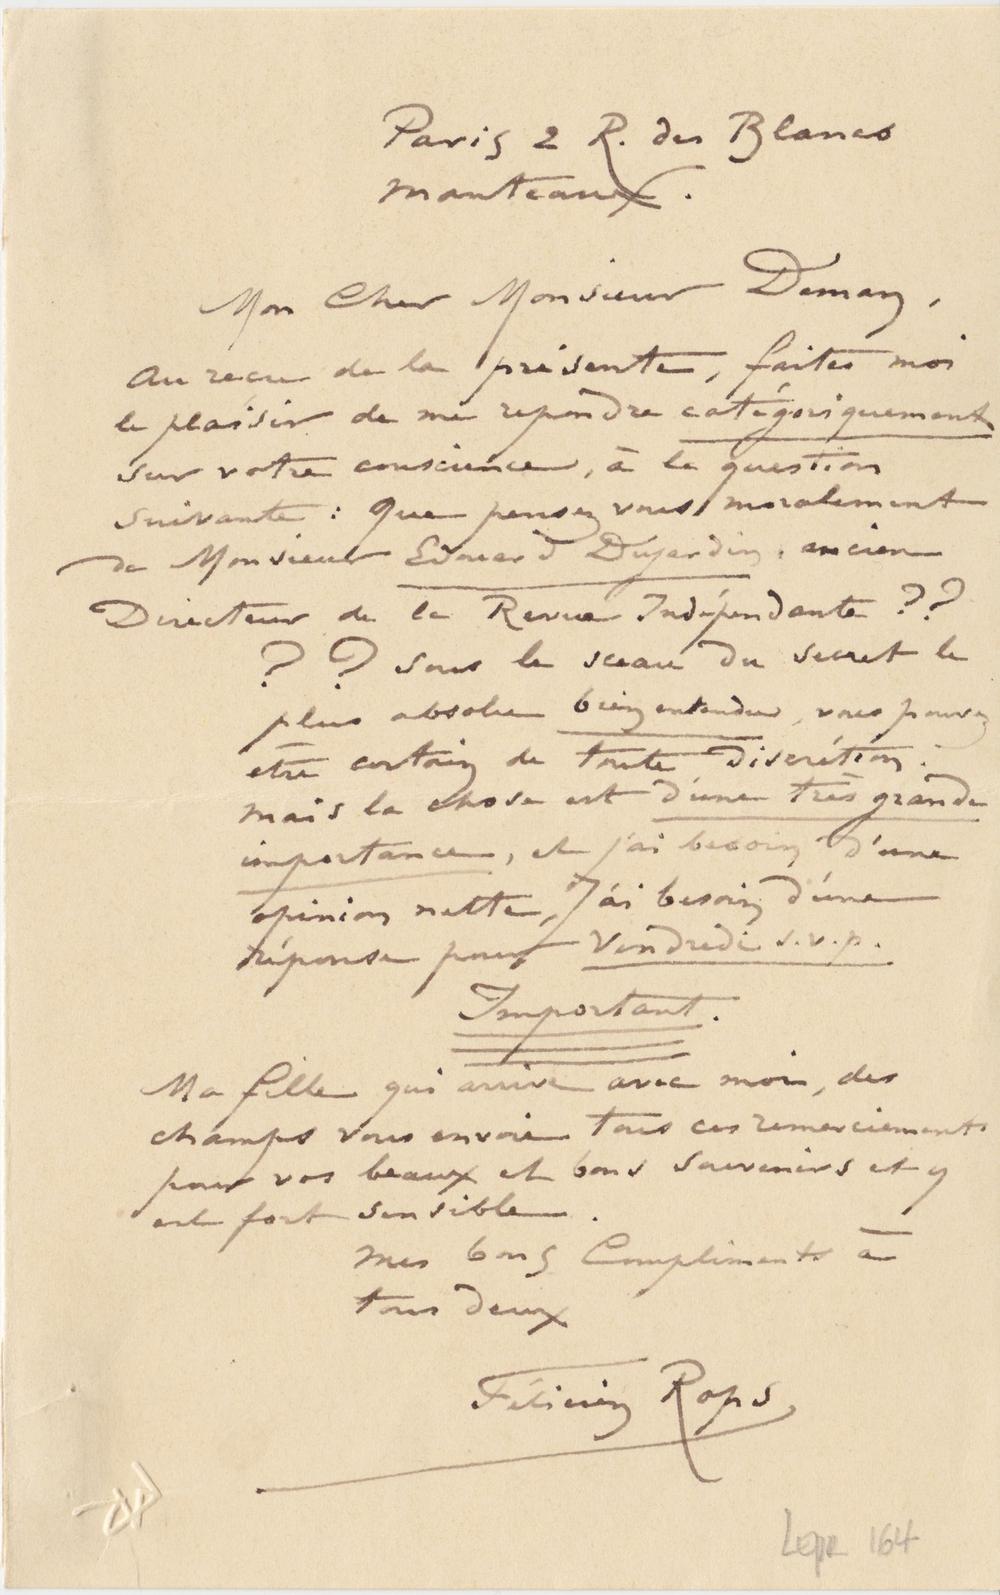 Paris 2 R. des Blancs
Manteaux.
Mon Cher Monsieur Deman,
Au reçu de la présente, faites moi
le plaisir de me repondre catégoriquement
sur votre conscience, à la question
suivante : Que pensez vous moralement
de Monsieur Edouard Dujardin, ancien
Directeur de la Revue Indépendante ??
? ? Sous le sceau du secret le
plus absolu bien entendu, vous pouvez
être certain de toute discrétion.
mais la chose est d'une très grande
importance, et j'ai besoin d'une
opinion nette, J'ai besoin d'une
réponse pour Vendredi s.v.p.
Important.
Ma fille qui arrive avec moi, des
champs vous envoie tous ces remerciements
pour vos beaux et bons souvenirs et y
est fort sensible.
Mes bons Compliments à
tous deux
Félicien Rops
LEpr 164